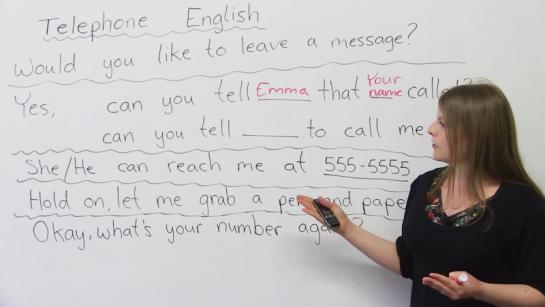 Telephone English
Would you like to leave a message?
Yes, can you tell Emma that Your name called?
can you tell ____ to call me
She/He can reach me at 555-5555
Hold on, let me grab a pen and pape
Okay, what's your number again?